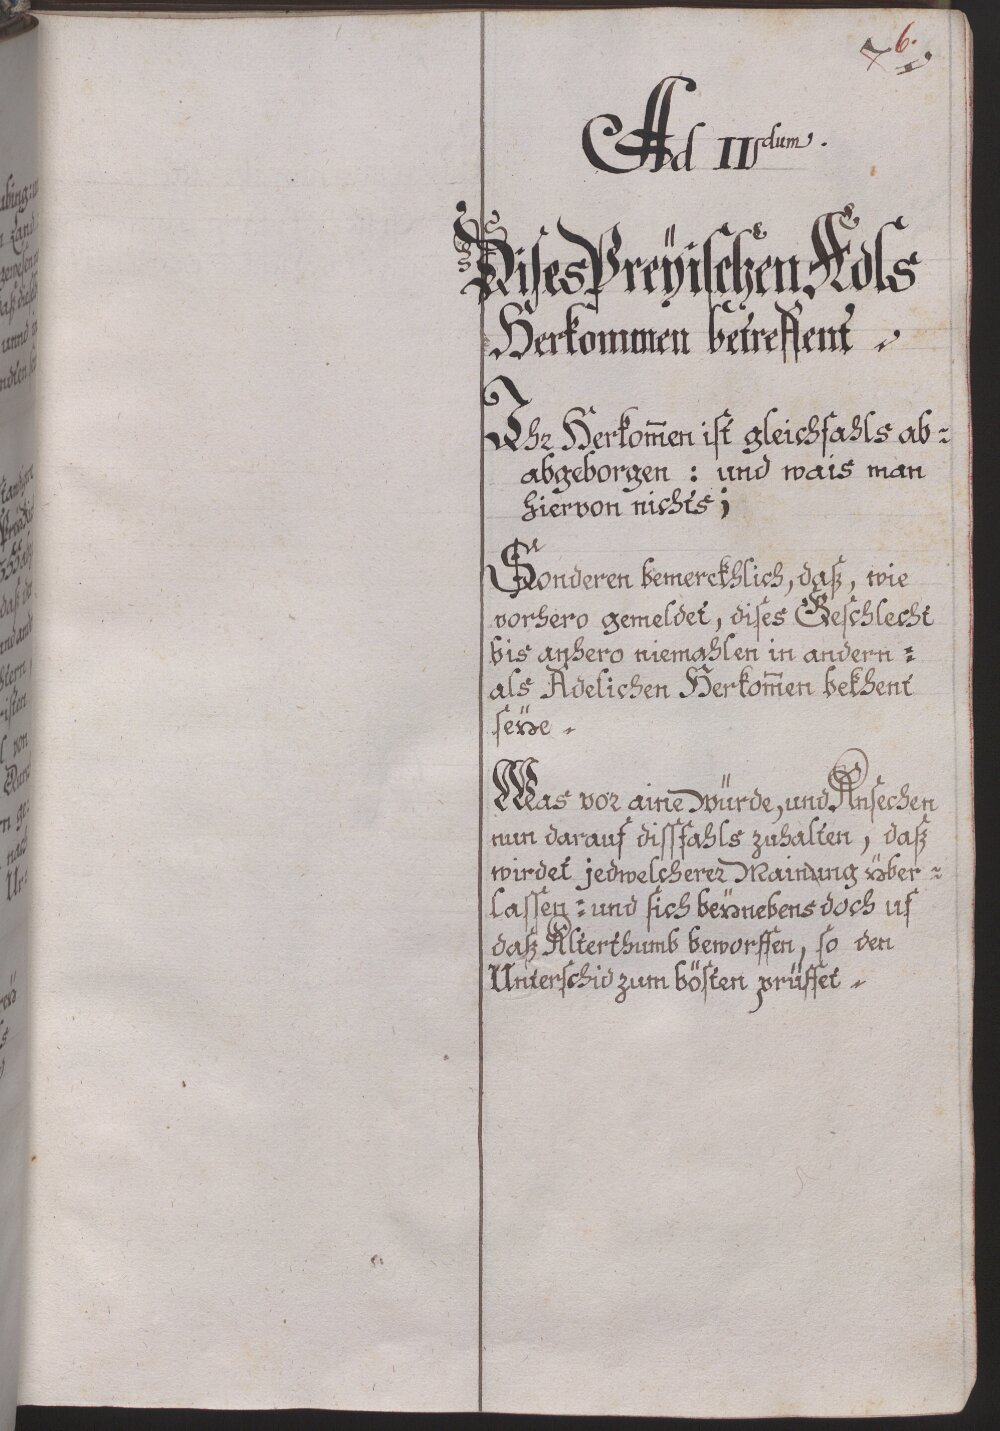 6.
Ad II.dum.
Dises Preÿischen Adls
Herkommen betreffent
Ihr Herkom̄en ist gleichfahls ab=
abgeborgen : und wais man
hiervon nichts;
Sonderen bemerckhlich, daß, wie
vorhero gemeldet, dises Geschlecht
bis anhero niemahlen in andern =
als Adelichen Herkom̄en bekhent
seÿe.
Was vor aine Würde, und Ansechen
nun darauf dissfahls zuhalten, daß
wirdet jedwelcherer Mainung yber =
lassen = und sich beÿnebens doch uf
daß Alterthumb beworffen, so den
Unterschid zum bösten prüffet.